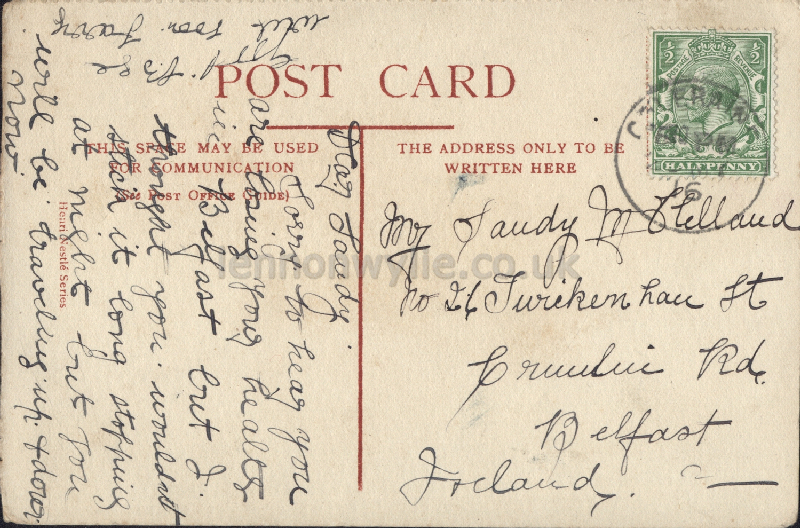 POST CARD
THIS SPACE MAY BE USED
FOR COMMUNICATION
(See Post Office Guide)
THE ADDRESS ONLY TO BE
WRITTEN HERE
Dear Sandy
Sorry to hear you
are losing your health
in Belfast but I
thought you wouldnt
stan it long stopping
at night but you
will be traveling up & down
now
will soon
Mr Sandy McClelland
No 26 Twickenhau St
Crumlin Rd.
Belfast
Ireland.
Henri Nestlé Series
½ ½
POSTAGE REVENUE
HALFPENNY
lennonwylie.co.uk